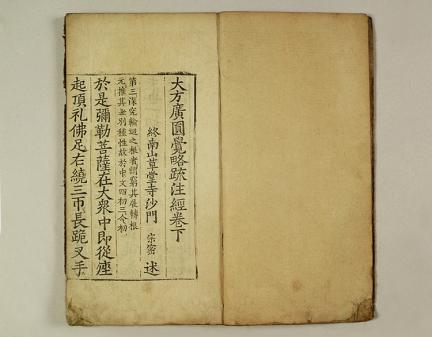 大方廣圓覺略疏注經卷下
終南山草堂寺沙門 宗密 述
第三深究輪迴之根者謂窮其展轉根
元推其差別種性故於中文四初三令初
於是彌勒菩薩在大衆中即從座
起頂礼佛足右繞三帀長跪叉手